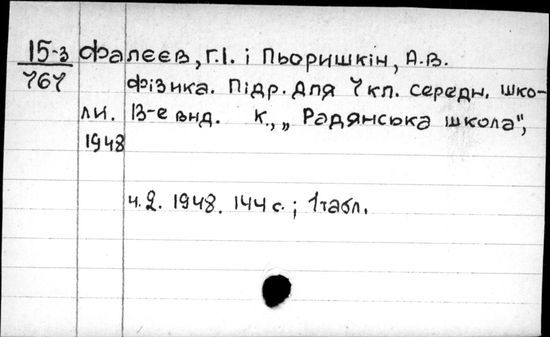 15-3 Фалєєв, Г.І. і Пьоришкін, А.В.
767 Фізика. Підр. для 7 кл. середн. шко-
ли. 13-е вид. К., „Радянська школа",
1948
ч.2. 1948. 144 с.; 1 табл.